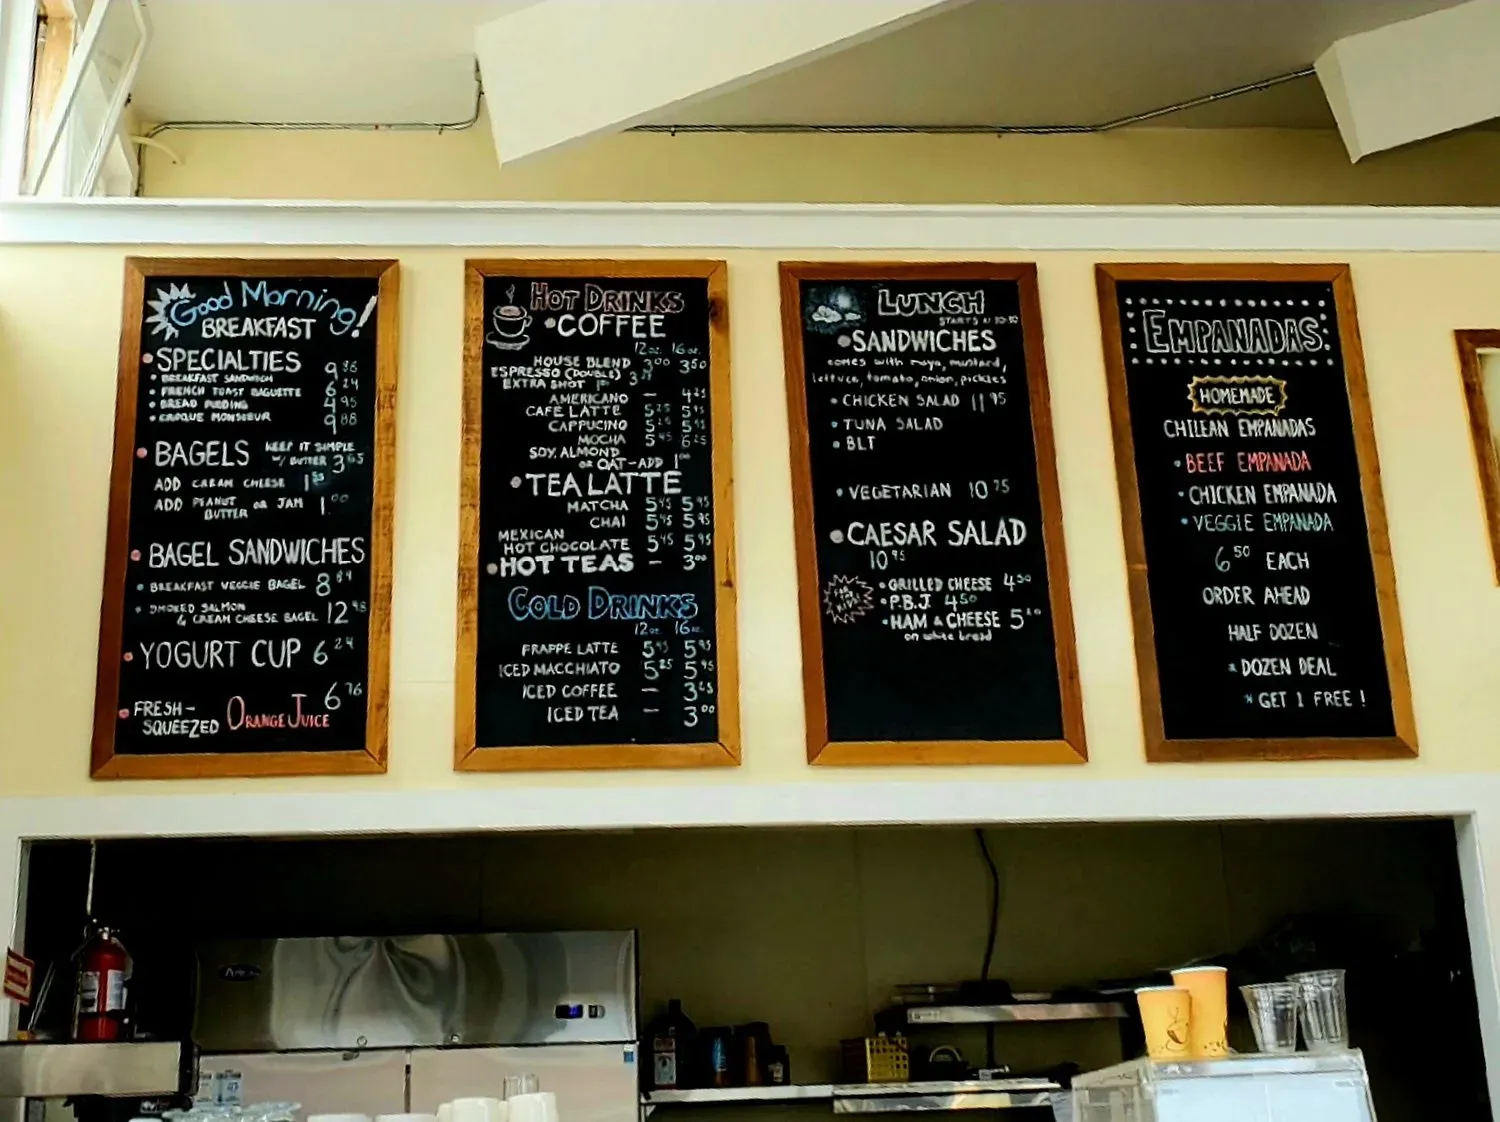 Good Morning!
BREAKFAST
SPECIALTIES
BREAKFAST SANDWICH 9 86
FRENCH TOAST BAGUETTE 6 24
BREAD PUDDING 4 95
CROQUE MONSIEUR 9 88
BAGELS KEEP IT SIMPLE
W/ BUTTER 3 65
ADD CREAM CHEESE 1
ADD PEANUT BUTTER OR JAM 1.00
BAGEL SANDWICHES
BREAKFAST VEGGIE BAGEL 8
SMOKED SALMON
& CREAM CHEESE BAGEL 12 98
YOGURT CUP 6 24
FRESH-
SQUEEZED ORANGE JUICE 6 76
HOT DRINKS
COFFEE
12oz. 16oz.
HOUSE BLEND 3 00 3 50
ESPRESSO (DOUBLE) 3
EXTRA SHOT 1
AMERICANO — 4 25
CAFE LATTE 5 25 5 95
CAPPUCINO 5 25 5 95
MOCHA 5 45 6 25
SOY, ALMOND
OR OAT-ADD 1 00
TEA LATTE
MATCHA 5 45 5 95
CHAI 5 45 5 95
MEXICAN
HOT CHOCOLATE 5 45 5 95
HOT TEAS — 3 00
COLD DRINKS
12oz. 16oz.
FRAPPE LATTE 5 45 5 95
ICED MACCHIATO 5 25 5 95
ICED COFFEE — 3 25
ICED TEA — 3 00
LUNCH
STARTS AT 10:30
SANDWICHES
comes with mayo, mustard,
lettuce, tomato, onion, pickles
CHICKEN SALAD 11 95
TUNA SALAD
BLT
VEGETARIAN 10 75
CAESAR SALAD
10 95
FOR THE KIDS
GRILLED CHEESE 4 50
P.B.J. 4 50
HAM & CHEESE 5
on white bread
EMPANADAS
HOMEMADE
CHILEAN EMPANADAS
BEEF EMPANADA
CHICKEN EMPANADA
VEGGIE EMPANADA
6 50 EACH
ORDER AHEAD
HALF DOZEN
* DOZEN DEAL
* GET 1 FREE!